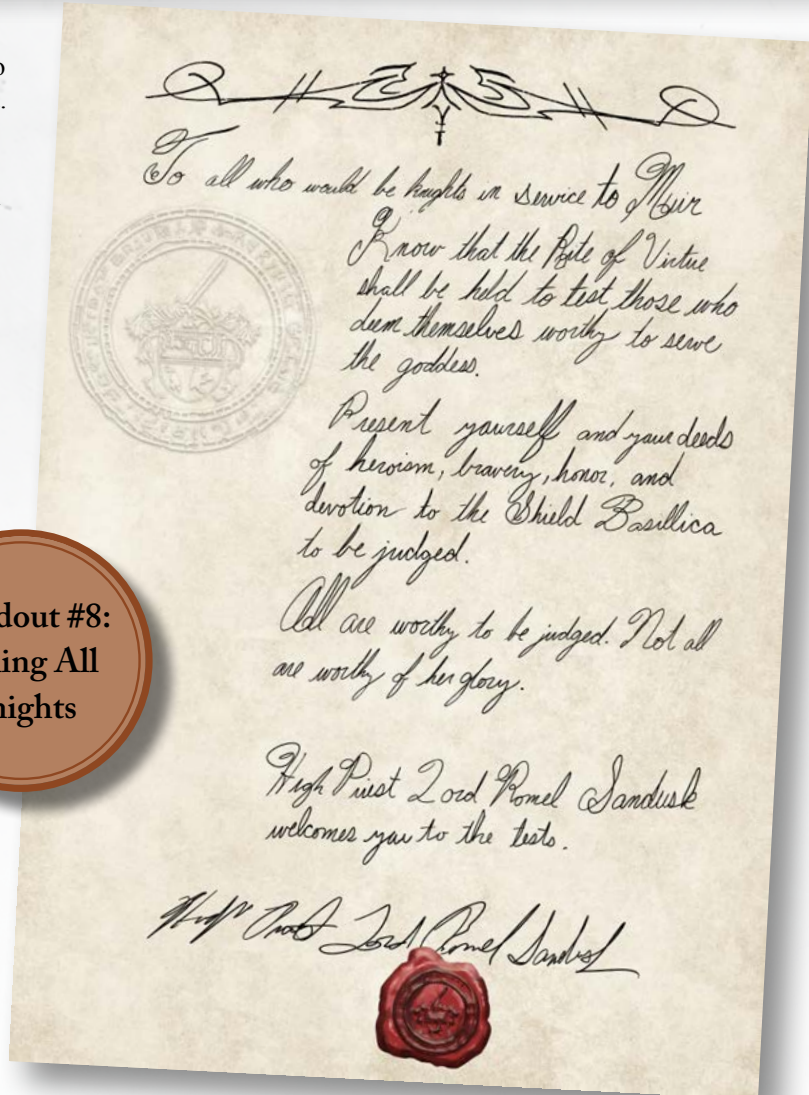 To all who would be knights in service to Muir
Know that the Rite of Virtue
shall be held to test those who
deem themselves worthy to serve
the goddess.
Present yourself and your deeds
of heroism, bravery, honor, and
devotion to the Shield Basillica
to be judged.
All are worthy to be judged. Not all
are worthy of her glory.
High Priest Lord Romel Sandusk
welcomes you to the tests.
High Priest Lord Romel Sandusk
dout #8:
ing All
nights